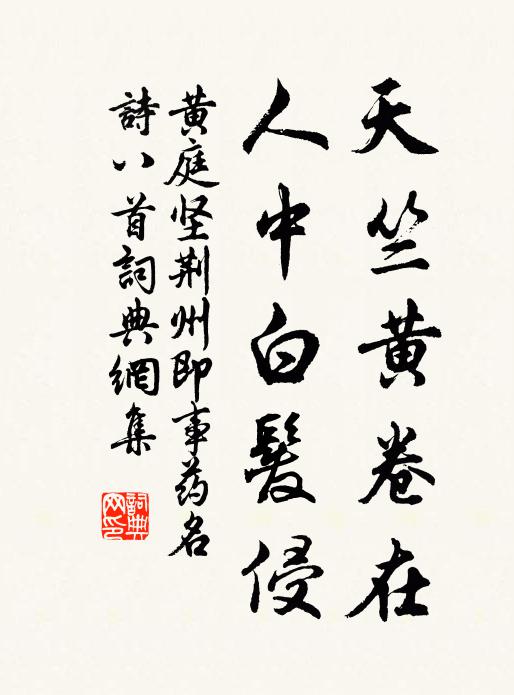 天竺黄卷在
人中白髮侵
黄庭坚荆州即事药名
詩八首詞典網集
詞典网印